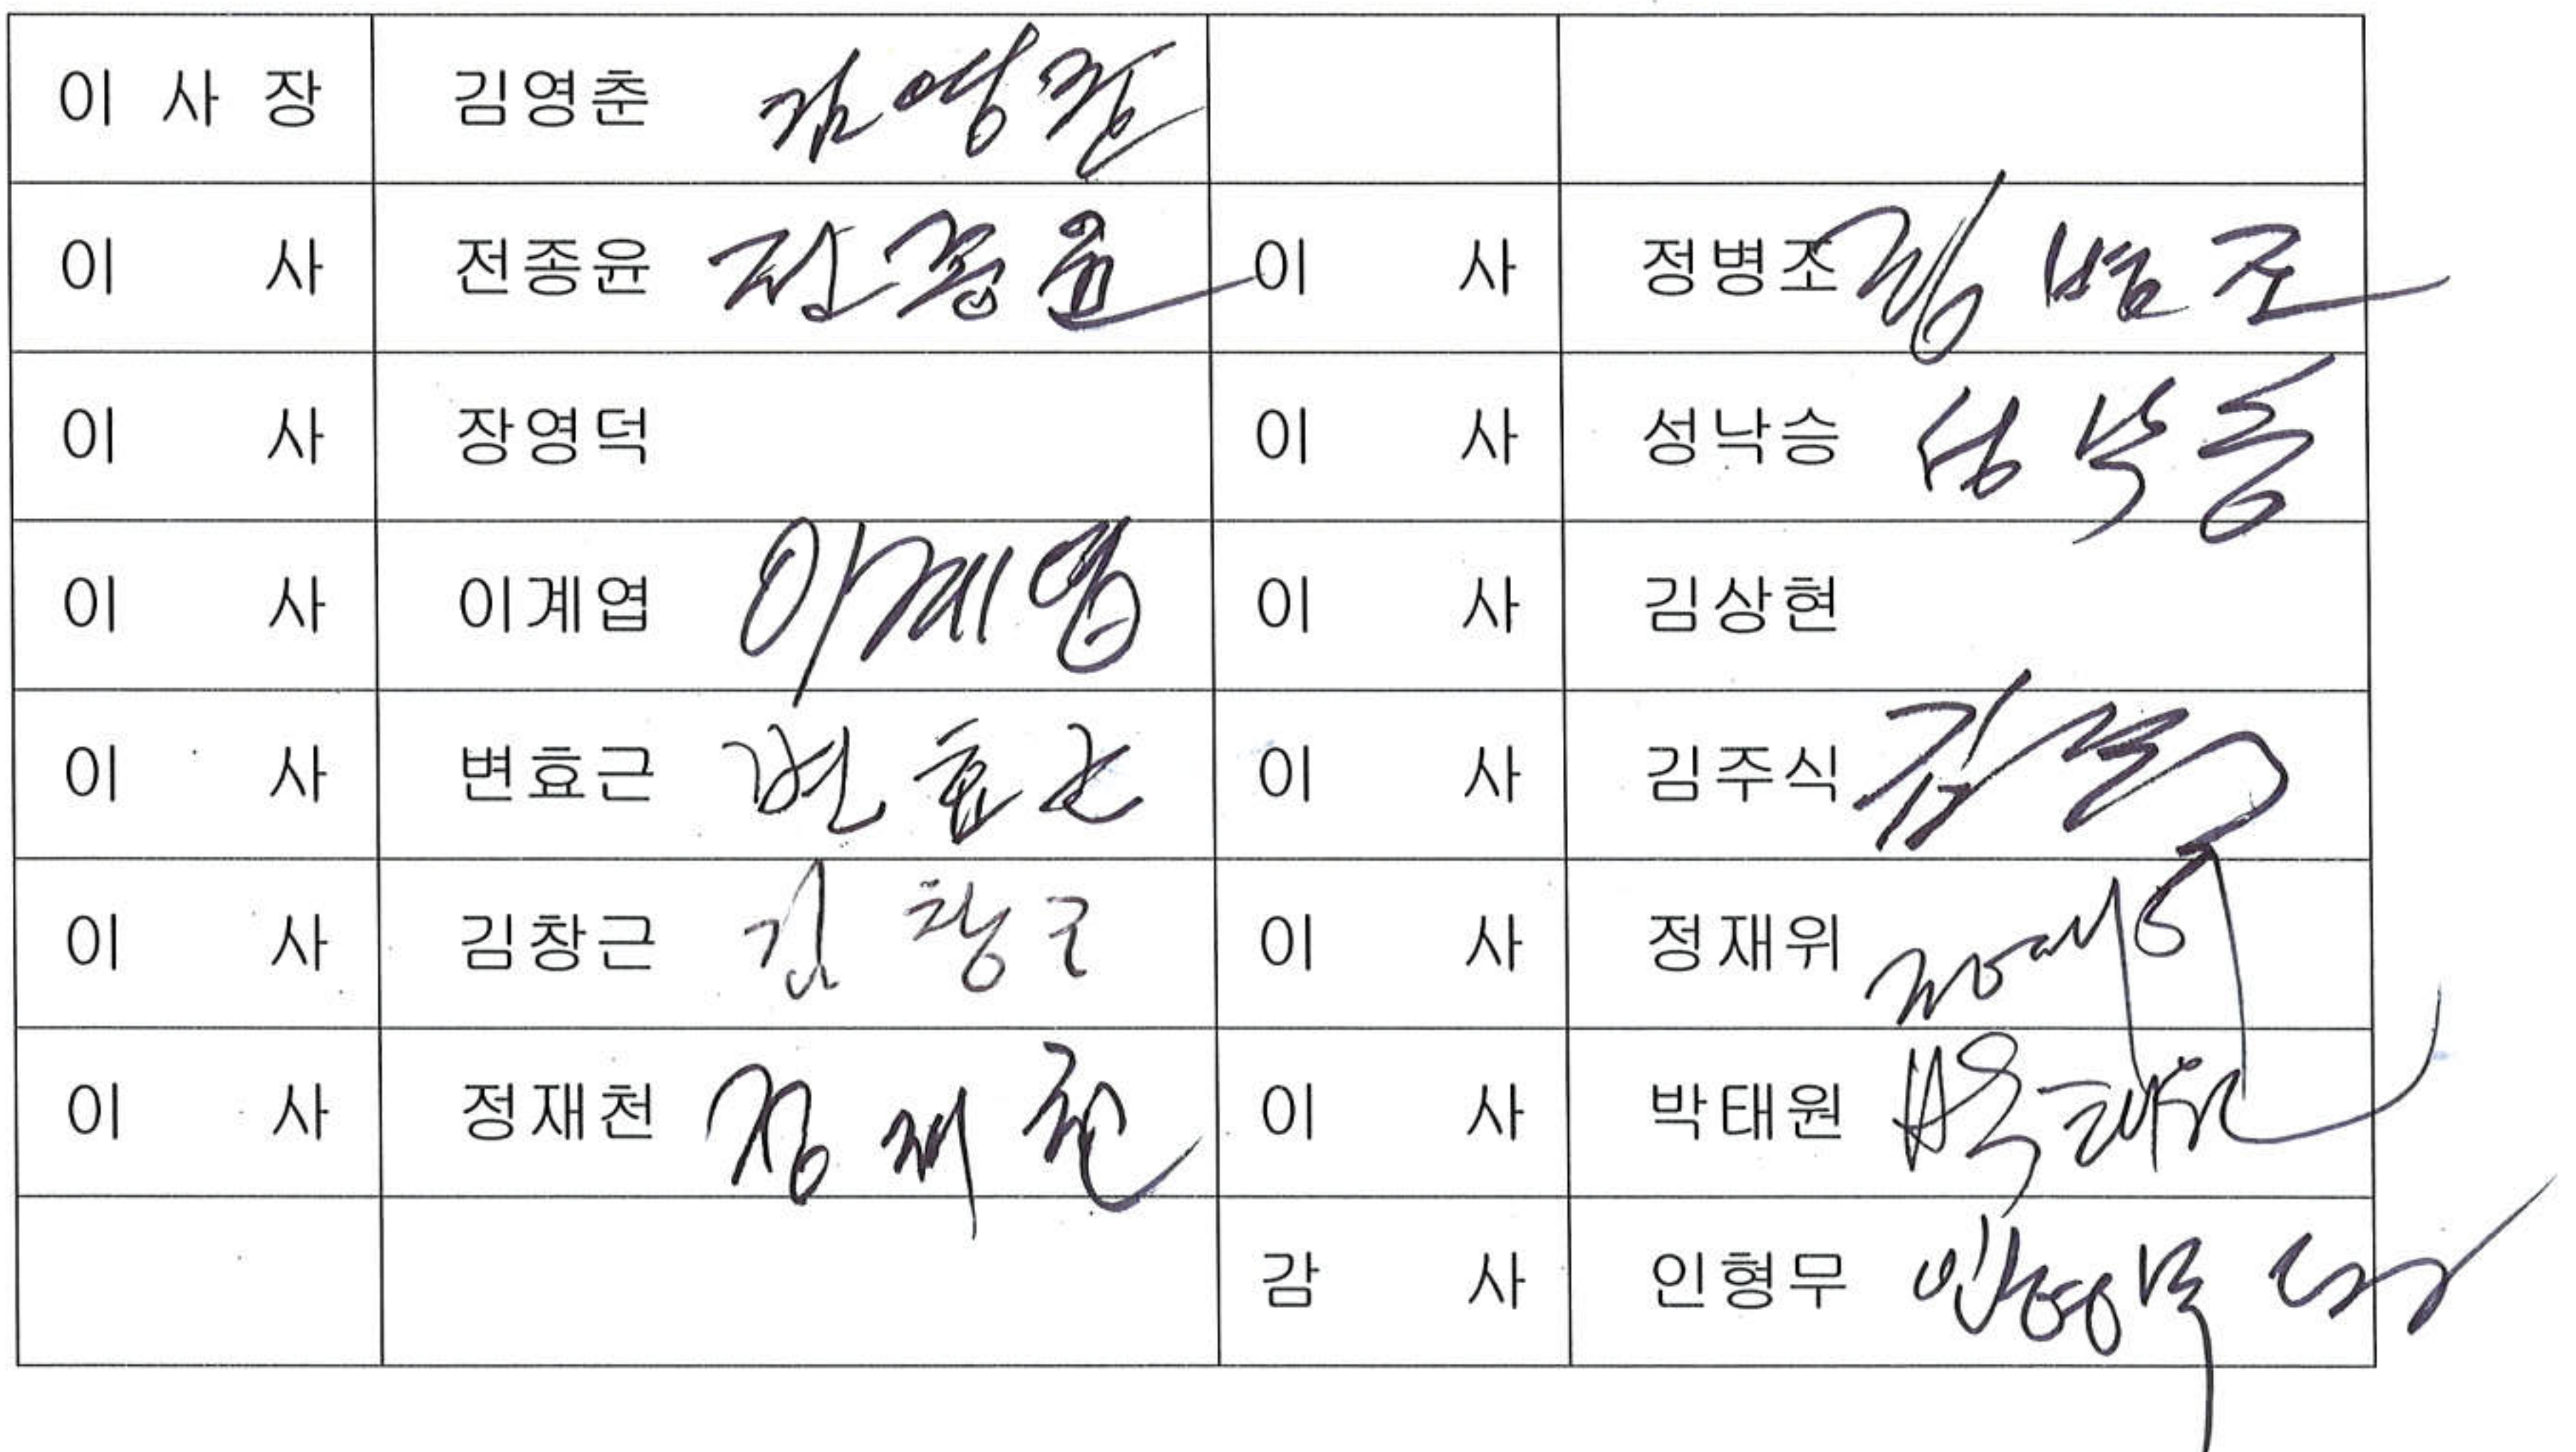 이 사 장 김영춘 김영춘
이 사 전종윤 전종윤 이 사 정병조 정병조
이 사 장영덕 이 사 성낙승 성낙승
이 사 이계엽 이계엽 이 사 김상현
이 사 변효근 변효근 이 사 김주식
이 사 김창근 김창근 이 사 정재위
이 사 정재천 정재천 이 사 박태원 박태원
감 사 인형무 인형무